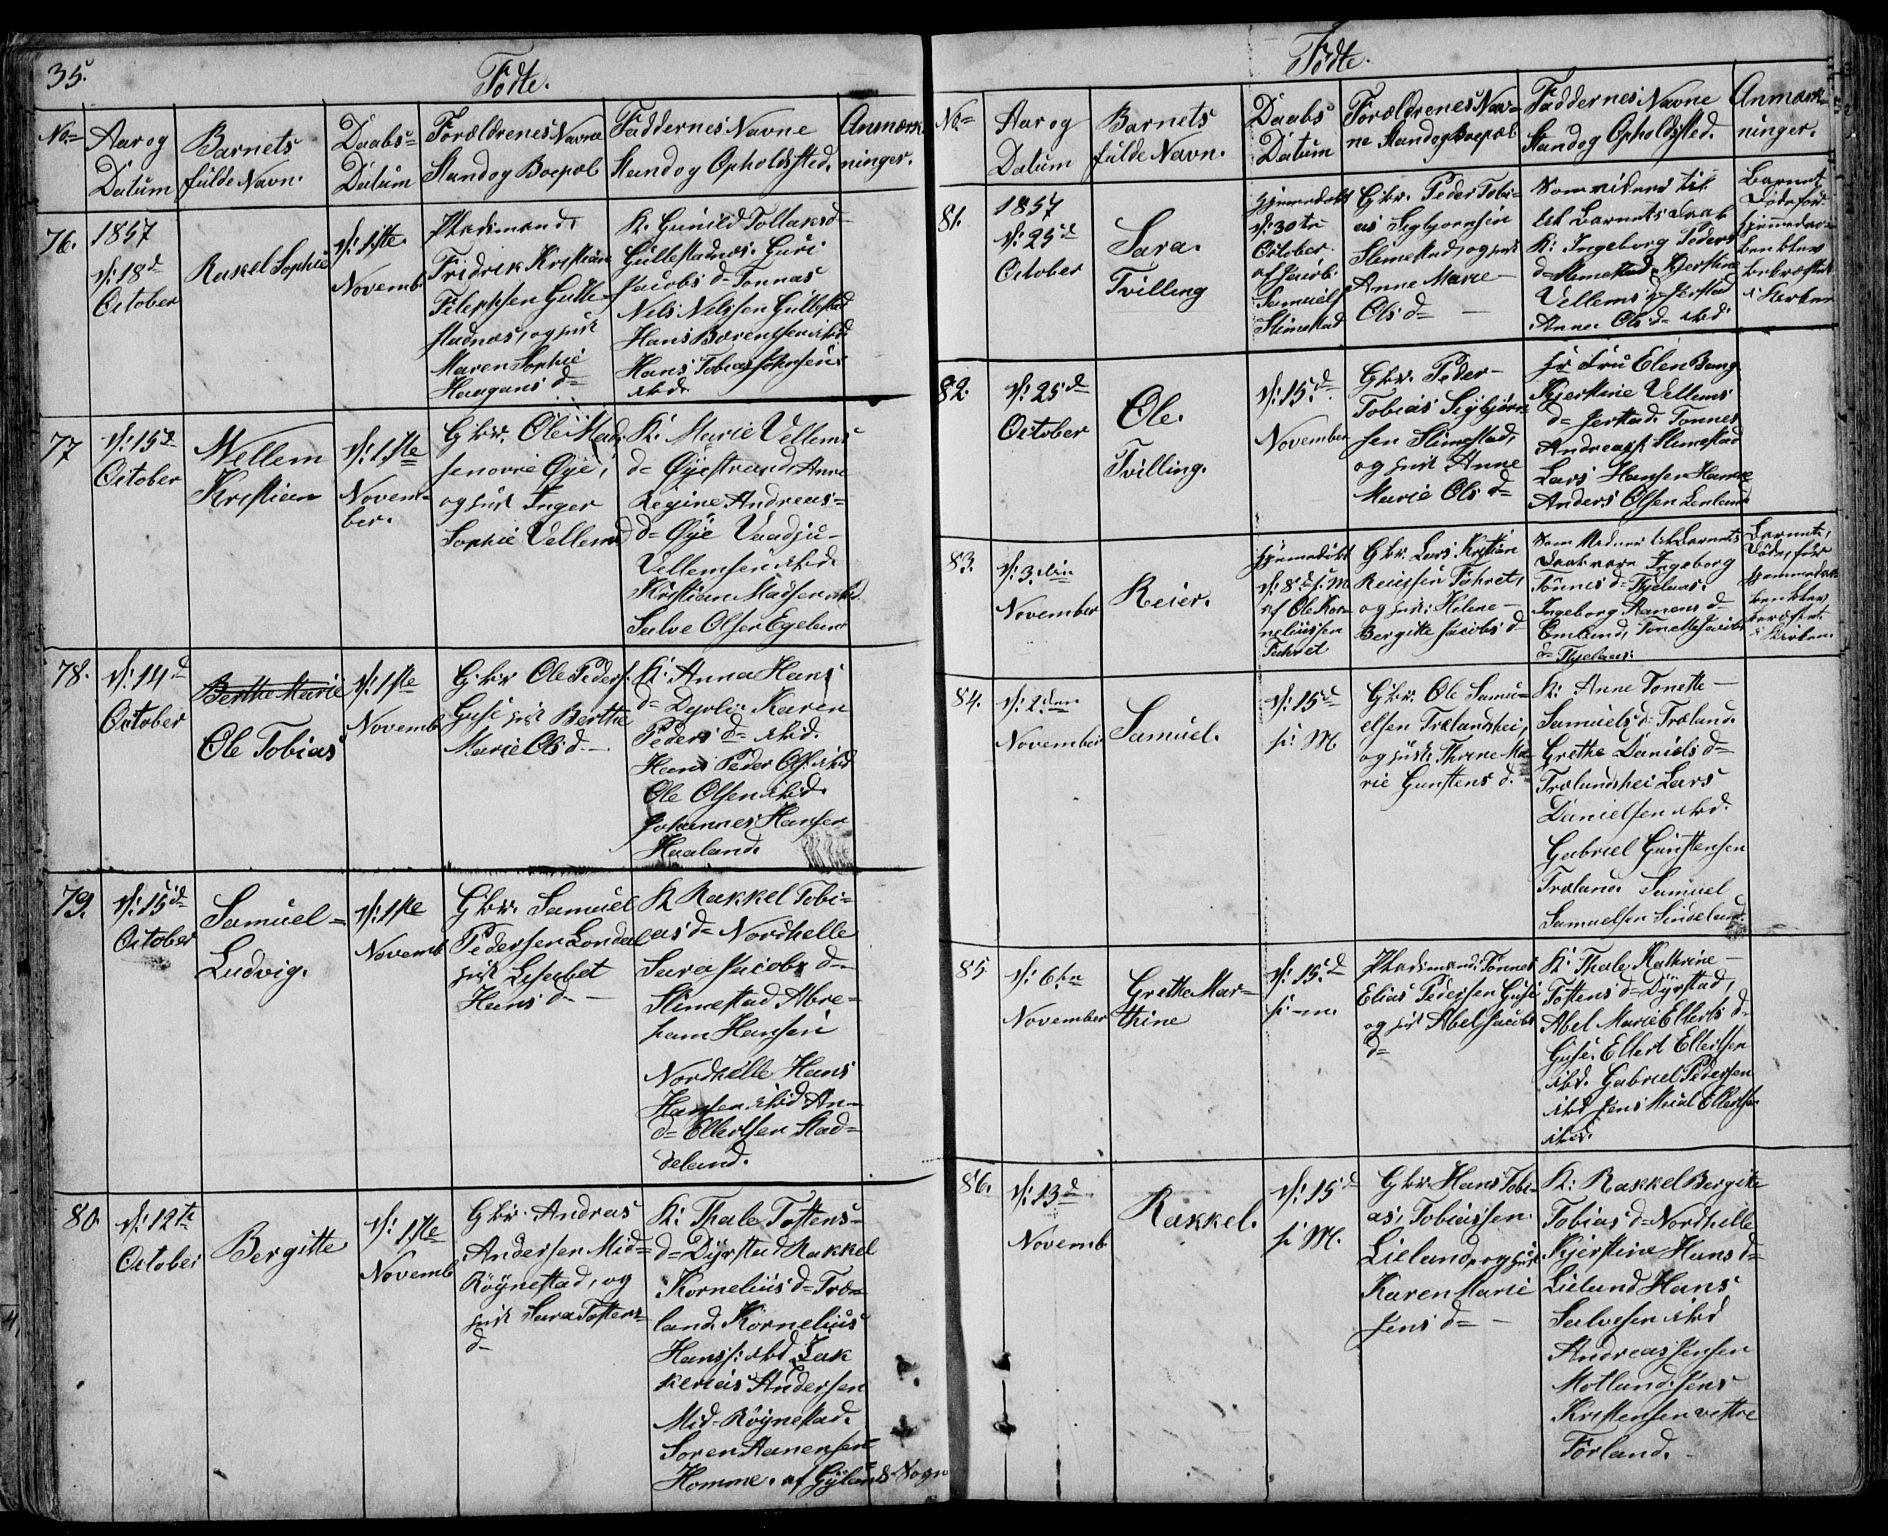 35.
Fødte.
No=
Aar og
Datum
Barnets
fulde Navn.
Daabs=
Datum
Forældrenes Navne
Stand og Boepæl
Faddernes Navne
Stand og Opholdsted.
Anmærk
ninger.
76.
1857
d: 18d
October
Rakel Sophie
d: 1ste
Novemb
Fridrik Kristian
Fileppsen Gulle
stadnæs, og hust
Maren Sophie
Haagans d=
K: Gunild Tollaksd=
Gullestadnæs. Guri
Jacobs d= Tonnas
Nils Nilssen Gullestad
Hans Bærentsen ibid
Hans Tobias
ibid.
77
d: 15d
October
Wellem
Kristian
d: 1ste
Novem=
ber.
Gbr. Ole Mad
sen øvre Øye,
og hust Inger
Sophie Vellems d
K: Marie Vellems
d= Øyestrand, Anne
Regine Andreas=
d= Øye
Vellemsen ibid.
Kristian Madsen ibid
Salve Olsen Egeland
78.
d: 14d
October
Berthe Marie
Ole Tobias
d: 1ste
Novemb
Gbr Ole Peders.
Guse hust Berthe
Marie Ols d.-
K: Anna Hans
d= Dyrli Karen
Peders d= ibid.
Hans Peder Ols. ibid
Ole Olsen ibid.
Johannes Hansen
Haaland.
79.
d: 15d
October
Samuel=
Ludvig.
d: 1ste
Novemb
Gbr. Samuel
Pedersen Londal
hust Lisabet
Hans d= -
K Rakkel Tobi=
as d= Nordhelle
Sara Jacobs d=
Slimestad Abra=
ham Hansen
Nordhelle Hans
Hansen ibid An=
d= Ellertsen Stad=
deland.
80.
d: 12te
October
Bergitte
d: 1ste
Novemb
Gbr. Andreas
Andersen Mid=
Røynestad, og
hust Sara Tostens
d=
K: Thale Tostens=
d= Dyrstad Rakkel
Kornelius d= Træ=
land. Kornelius
Hanss: ibid Zak
kerias Andersen
Mid=Røynestad.
Soren Aanensen
Homme. af Gyland Sogn
Fødte.
No=
Aar og
Datum
Barnets
fulde Navn.
Daabs
Datum
Forældrenes Nav=
ne Stand og Boepæl
Faddernes Navne
Stand og Opholdsted.
Anmærk=
ninger.
81.
1857
d: 25d
October
Sara.
Tvilling
hjemmedøbt
d: 30te
October
af Jacob
Samuels
Slimestad
Gbr. Peder Tobi=
as Sigbjørnsen
Slimestad, og hust
Anne Marie -
Ols d= -
Som vidner til
K: Ingeborg Peders
d= Slimestad, Kjerstine
Vellems d= Jerstad
Anne Ols d= ibid.
Barnet
Døde før
hjemmedaa=
ben blev
bekræftet
i Kirken
82.
d: 25d
October
Ole.
Tvilling.
d: 15d
November
Gbr. Peder -
Tobias Sigbjørn
sen Slimestad,
og hust Anne
Marie Ols d=
Fru Elen Bang
Kjerstine Vellems
d= Jerstad. Tonnes
Andreass Slimestad
Lars Hansen
Anders Olsen
83.
d: 3die
November
Reier.
hjemmedøbt
d: 8d s: M
af Ole Kor=
neliussen
Gbr. Lars Kristian
og hust: Helene -
Bergitte Jacobs d
Som Vidner til Barnets
Daab vare Ingeborg
Tønnes d=
Ingeborg Aanens d=
Omland, Tonette Jacobs
Barnet,
Døde, før
hjemmedaa
ben blev
i Kirken.
84.
d: 2den
November
Samuel.
d: 15d
s: M
Gbr. Ole Samu=
elsen Trælandshei,
og hust. Thrine Ma=
rie Gunstens d.
K: Anne Tonette -
Samuels d= Træland.
Grethe Daniels d=
Trælandshei Lars
Danielsen ibid.
Gabriel Gunstensen
Træland Samuel
Samuelsen Sindeland.
85
d: 6te
November
Grethe Mar=
thine
d: 15d
s: m.
Tonnes
Elias Pedersen Guse
og hust Abel Jacobs
d=
K: Thale Kathrine -
Tostens d= Dyrstad,
Abel Marie Ellerts d=
Guse. Ellert Ellertsen
ibid. Gabriel Pedersen
ibid Jens Ellertsen
ibid.
86.
d: 13d
Novemb
Rakkel.
d: 15d
s: M.
Gbr. Hans Tobi=
as, Tobiassen
Lieland, og hust
Karen Marie
Jens d= -
K: Rakkel Bergitte
Tobias d= Nordhelle
Kjerstine Hans d=
Lieland Hans
Salvesen ibid
Andreas Jensen
Motland, Jens
Kristensen vestre
Förland. -